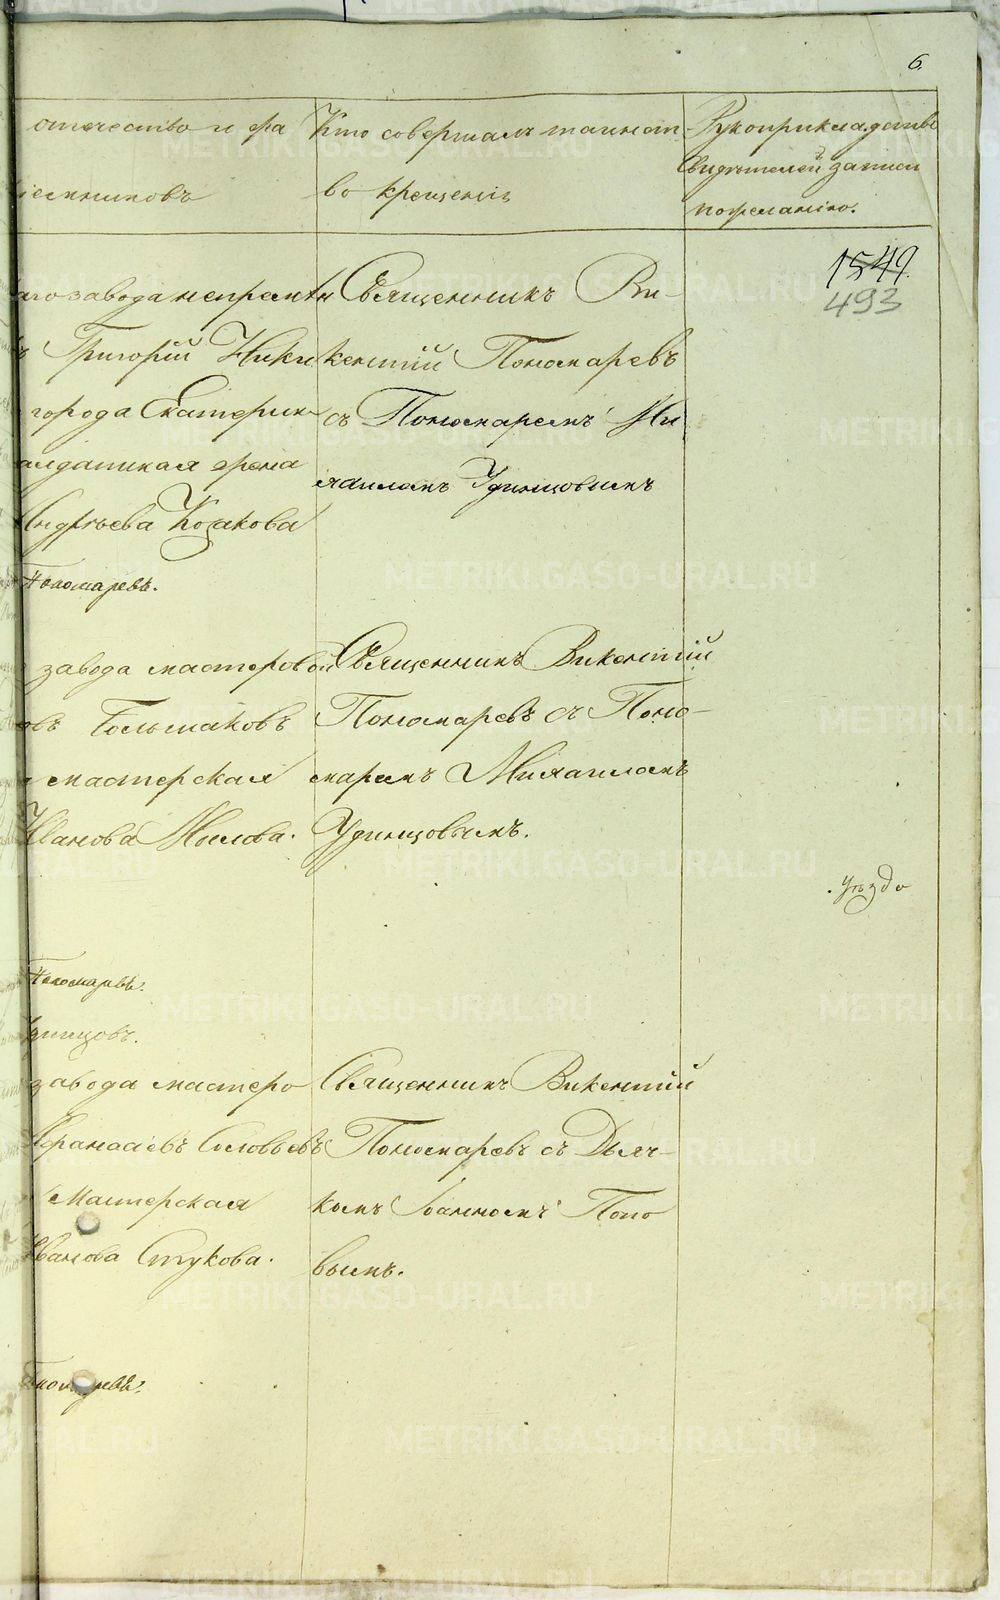 6.
отечество и фа
Кто совершалъ таинст-
во крещенія
Рукоприкладство
свидѣтелей записи
по желанію.
1549.
493
аго завода непремѣн
Григорій Ники
города Екатерин-
фена
Андреева Козакова
Пономаревъ.
Священникъ Ви-
кентій Пономаревъ
съ Пономаремъ Ми
хаиломъ Удинцовымъ
завода мастеровой
овъ Большаковъ
мастерская
Иванова Мылова.
Священникъ Викентій
Пономаревъ съ Поно-
маремъ Михаиломъ
Удинцовымъ.
уѣзда
Пономаревъ.
завода мастеро
Афанасіевъ Соловьевъ
мастерская
Иванова Стукова.
Священникъ Викентій
Пономаревъ съ Дьяч-
комъ Іоанномъ Попо
вымъ.
METRIKI.GASO-URAL.RU